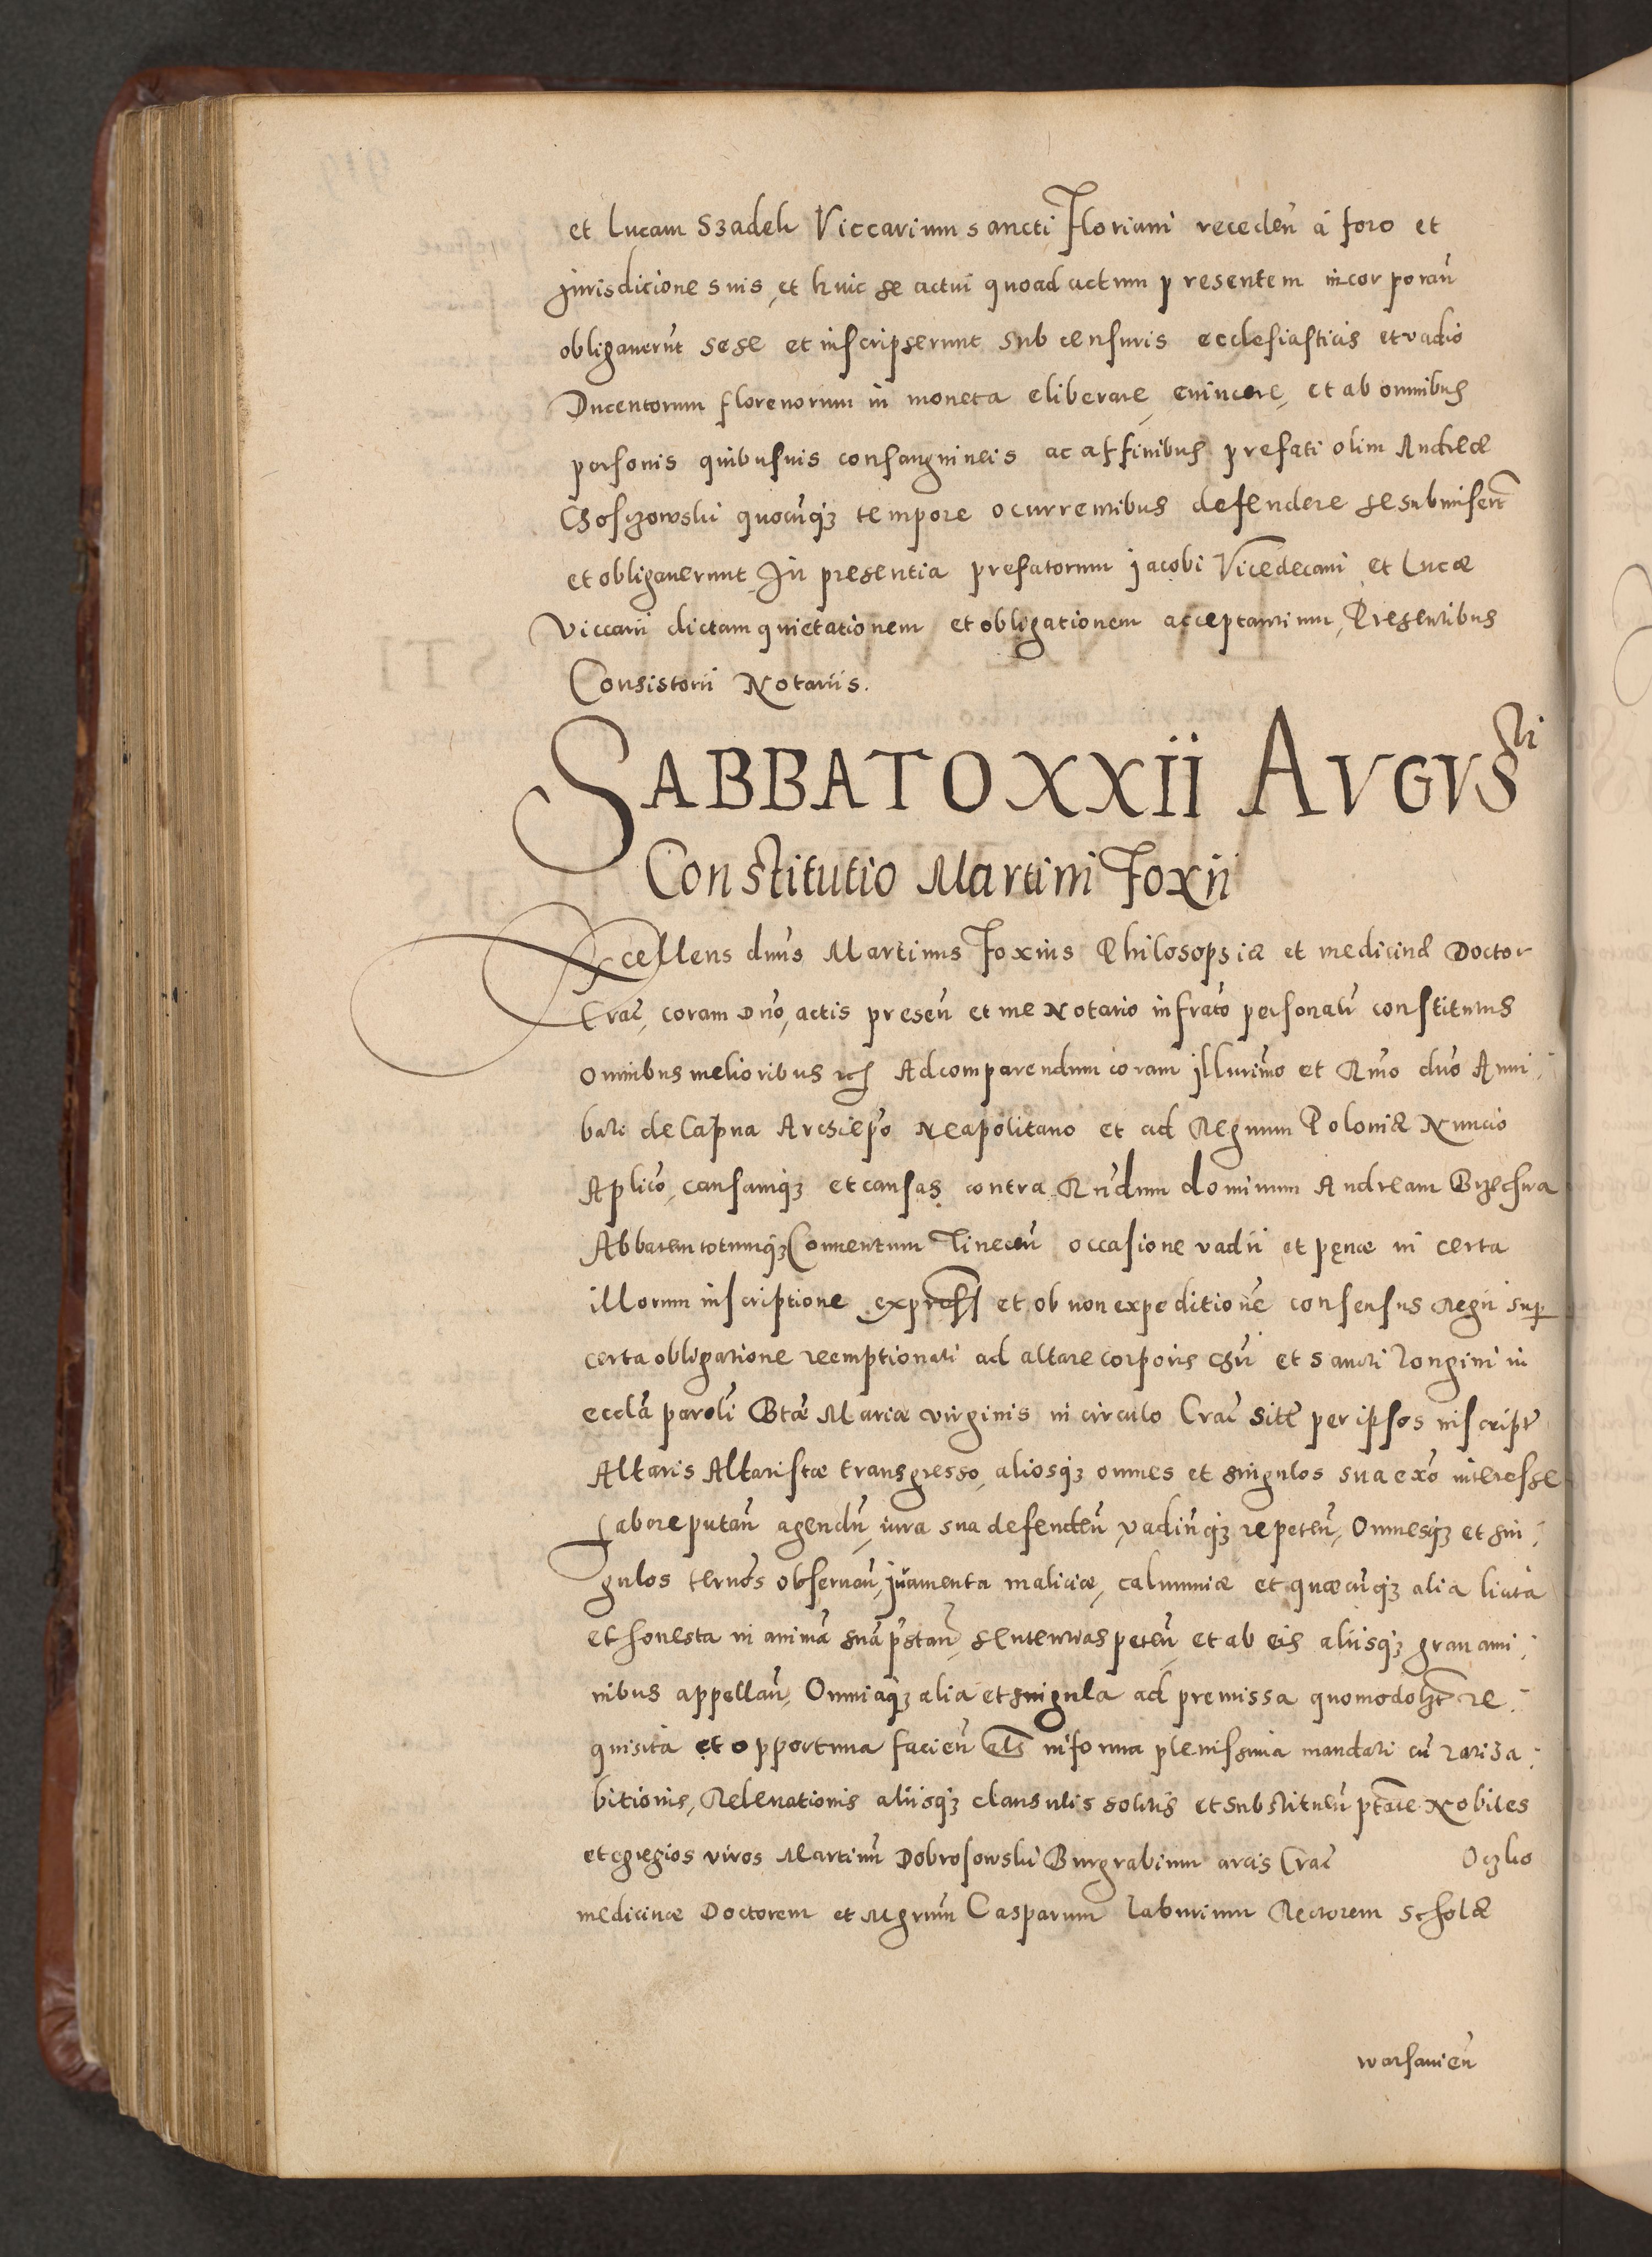 et Lucam Szadek Viccarium sancti Floriani receden̄ á foro et
jurisdicione suis, et huic se actui quoad actum presentem incorporan̄
obligauerūt sese et inscripserunt sub censuris ecclesiasticis et vadio
Ducentorum florenorum in moneta eliberare, euincere, et ab omnibus
personis quibusuis consanguineis ac affinibus prefati olim Andreæ
Choſczowski quocūq₃ tempore ocurrentibus defendere se submiserūt
et obligauerunt In presentia prefatorum jacobi Vicedecani et Lucæ
Viccarii dictam quietationem et obligationem acceptantium, Presentibus
Consistorii Notariis.
SABBATO XXII AVGVSti
Constitutio Martini Foxii
Excellens dnūs Martinus Foxius Philosophiæ et medicinæ Doctor
Crac̄, coram Dn̄o, actis presen̄ et me Notario infrāto personatr̄ constitutus
omnibus melioribus etc̄ Ad comparendum coram jllurimo et Rm̄o dn̄o Anni:
bali de Capua Archiepō Neapolitano et ad Regnum Poloniæ Nuncio
Aplico, causamq₃ et causas contra Rn̄dum dominum Andream Brzechwa
Abbatem totumq₃ Conuentum Tinecen̄ occasione vadii et pęnæ in certa
illorum inscriptione express et ob non expeditionē consensus Regii sup
certa obligatione reemptionali ad altare corporis Chri et sancti Longini in
ecclā parolī Btæ Mariæ virginis in circulo Crac̄ sitr̄ per ipsos inscript̄
Altaris Altaristæ transgresso, aliosq₃ omnes et singulos sua exō interesse
habere putan̄ agendn̄, iura sua defenden̄ vadiūq₃ repeten̄, Omnesq₃ et sin:
gulos ternōs obseruan̄, juramenta maliciæ, calumniæ et quæcūq₃ alia licita
et honesta in animā suā prestan̄, sententias peten̄, et ab eis aliisq₃ grauami:
nibus appellan̄, Omniaq₃ alia et singula ad premissa quomodolt re:
quisita et opportuna facien̄ als in forma plenissima mandati cū rariha:
bitionis, Releuationis aliisq₃ clausulis solitis et substituen̄ ptāte Nobiles
et egregios viros Martinū Dobrosowski Burgrabium arcis Crac̄ Oczko
medicinæ Doctorem et Mgrum Casparum Laburium Rectorem scholæ
warsauien̄